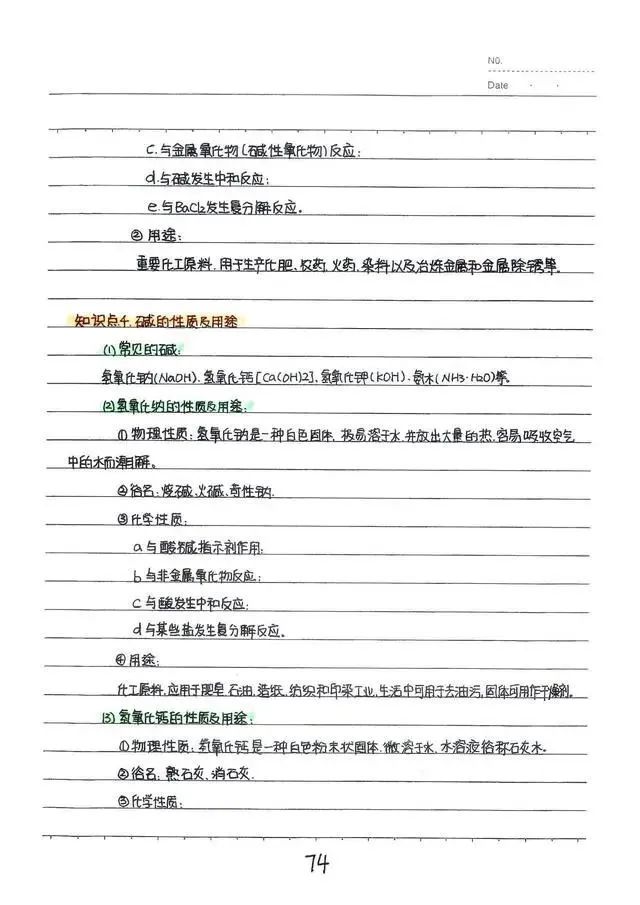 NO.
Date · ·
c.与金属氧化物(碱性氧化物)反应;
d.与碱发生中和反应;
e.与BaCl2发生复分解反应。
②用途:
重要化工原料,用于生产化肥、农药、火药、染料以及冶炼金属和金属除锈等。
知识点4.碱的性质及用途
(1)常见的碱:
氢氧化钠(NaOH).氢氧化钙[Ca(OH)2],氢氧化钾(KOH).氨水(NH3·H2O)等。
(2)氢氧化钠的性质及用途:
①物理性质:氢氧化钠是一种白色固体,极易溶于水,并放出大量的热,容易吸收空气
中的水而潮解。
②俗名:烧碱、火碱、苛性钠.
③化学性质:
a 与酸碱指示剂作用;
b 与非金属氧化物反应;
c 与酸发生中和反应;
d 与某些盐发生复分解反应。
④用途:
化工原料,应用于肥皂 石油,造纸,纺织和印染工业,生活中可用于去油污,固体可用作干燥剂。
(3)氢氧化钙的性质及用途:
①物理性质:氢氧化钙是一种白色粉末状固体.微溶于水,水溶液俗称石灰水。
②俗名:熟石灰、消石灰.
③化学性质:
74